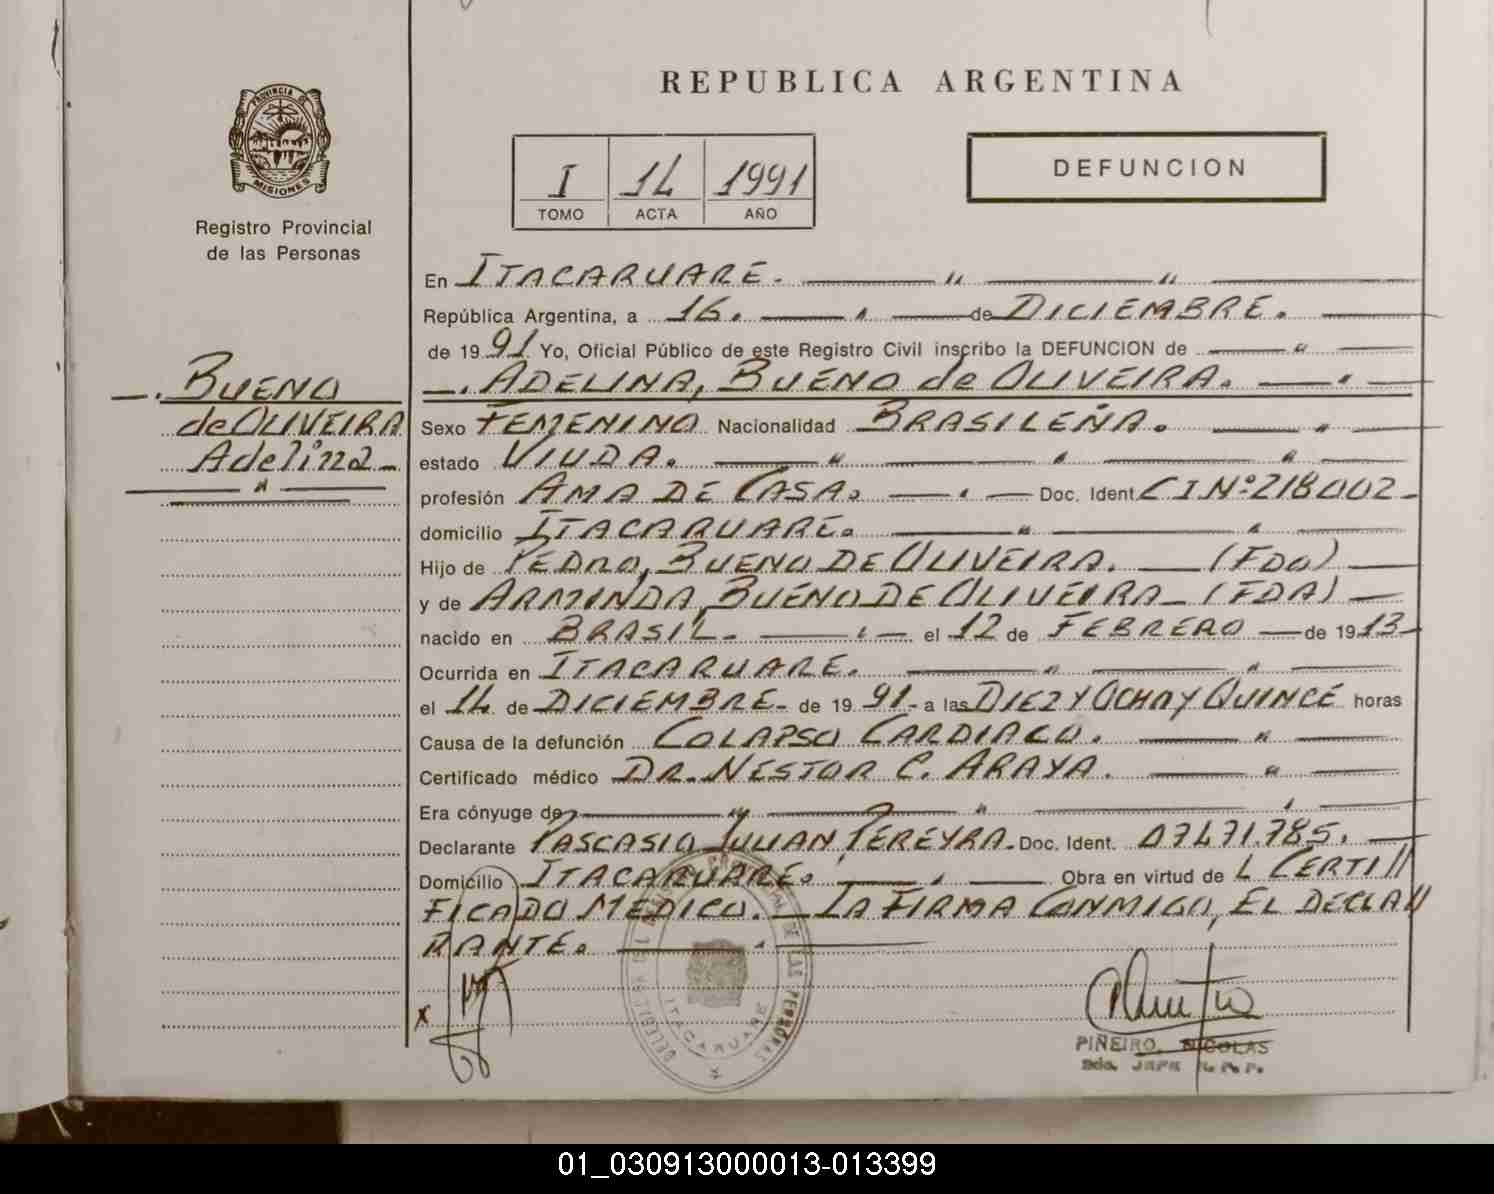 REPUBLICA ARGENTINA
PROVINCIA DE
MISIONES
Registro Provincial
de las Personas
I 14 1991
TOMO ACTA AÑO
DEFUNCION
En ITACARUARE. — " — " —
República Argentina, a 16. — " — de DICIEMBRE. —
de 1991. Yo, Oficial Público de este Registro Civil inscribo la DEFUNCION de — " —
—. BUENO
de OLIVEIRA
Adelina —
— " —
—. ADELINA, BUENO de OLIVEIRA. — " —
Sexo FEMENINO Nacionalidad BRASILEÑA. — " —
estado VIUDA. — " — " — " —
profesión AMA DE CASA. — " — Doc. Ident. CI Nº 218002 -
domicilio ITACARUARE. — " — " —
Hijo de PEDRO, BUENO DE OLIVEIRA. — (FDO) —
y de ARMINDA, BUENO DE OLIVEIRA — (FDA) —
nacido en BRASIL - — " — el 12 de FEBRERO — de 1913 -
Ocurrida en ITACARUARE. — " — " —
el 14 de DICIEMBRE - de 1991 - a las DIEZ Y OCHO Y QUINCE horas
Causa de la defunción COLAPSO CARDIACO. — " —
Certificado médico DR. NESTOR C. ARAYA. — " —
Era cónyuge de — " — " — " —
Declarante PASCASIO JULIAN, PEREYRA. Doc. Ident. 07471.785. —
Domicilio ITACARUARE. — " — Obra en virtud de L CERTI//
FICADO MEDICO. — LA FIRMA CONMIGO, EL DECLA//
RANTE. — " —
x
DE LAS PERSONAS
ITACARUARE
PIÑEIRO, NICOLAS
JEFE R.P.P.
01_030913000013-013399